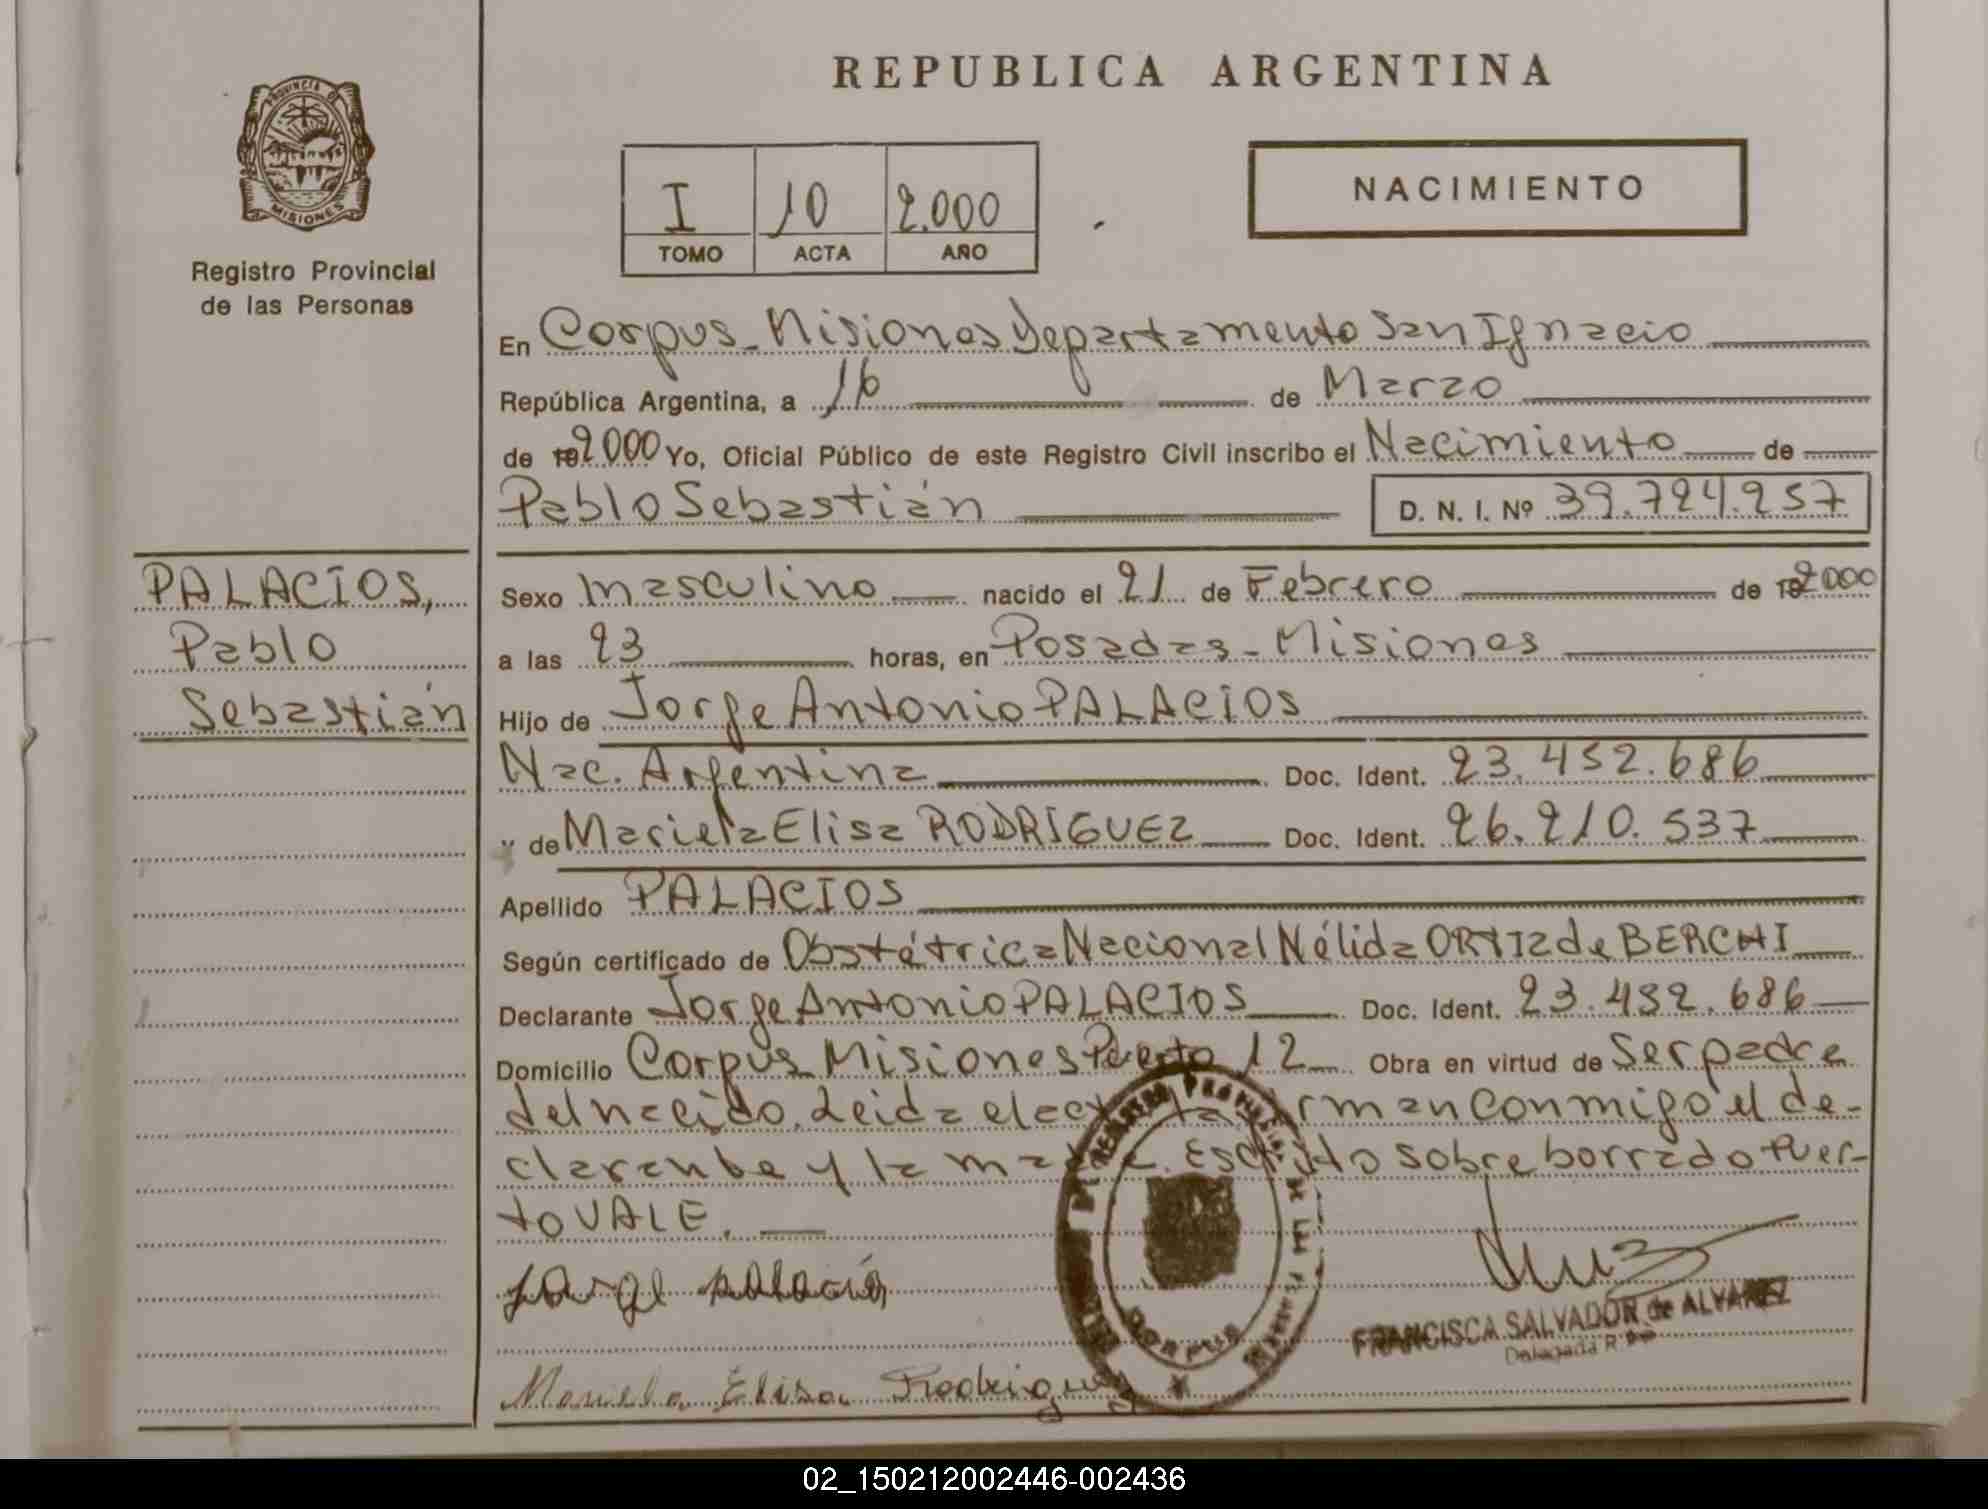 PROVINCIA DE
MISIONES
Registro Provincial
de las Personas
REPUBLICA ARGENTINA
I 10 2.000
TOMO ACTA AÑO
NACIMIENTO
En Corpus - Misiones Departamento San Ignacio
República Argentina, a 16 de Marzo
de 19 2000 Yo, Oficial Público de este Registro Civil inscribo el Nacimiento de
Pablo Sebastián D. N. I. Nº 39.724.257
PALACIOS,
Pablo
Sebastián
Sexo masculino nacido el 21 de Febrero de 19 2000
a las 23 horas, en Posadas - Misiones
Hijo de Jorge Antonio PALACIOS
Nac. Argentina Doc. Ident. 23.452.686
y de Mariela Elisa RODRIGUEZ Doc. Ident. 26.210.537
Apellido PALACIOS
Según certificado de Obstétrica Nacional Nélida ORTIZ de BERCHI
Declarante Jorge Antonio PALACIOS Doc. Ident. 23.452.686
Domicilio Corpus Misiones Puerto 12 Obra en virtud de Ser padre
del nacido. Leida el acta la firman conmigo el de-
clarante y la madre. Escrito sobre borrado Puer-
to VALE.
Jorge Palacio
Mariela Elisa Rodriguez
FRANCISCA SALVADOR de ALVAREZ
Delegada
02_150212002446-002436